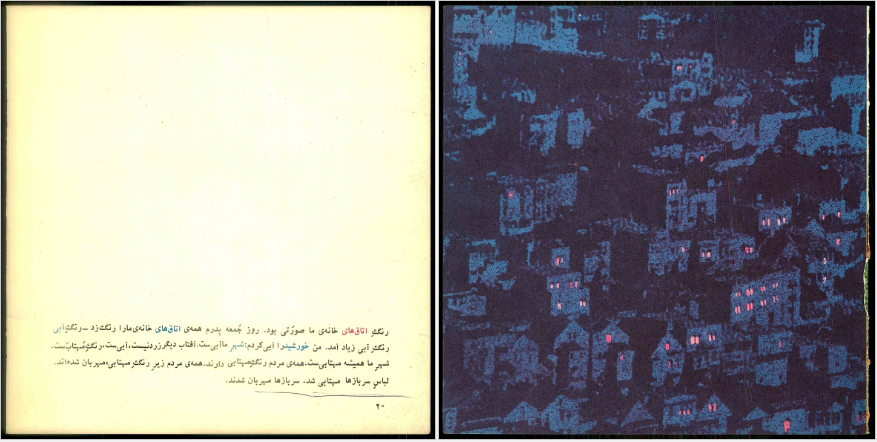 رنگِ اتاق‌های خانه‌ی ما صورتی بود. روز جُمعه پدرم همه‌ی اتاق‌های خانه‌ی ما را رنگ زد ــ رنگِ آبی
رنگِ آبی زیاد آمد. من خورشید را آبی کردم؛ شهرِ ما آبی‌ست. آفتاب دیگر زرد نیست، آبی‌ست، رنگِ مهتاب‌ست.
شهرِ ما همیشه مهتابی‌ست. همه‌ی مردم رنگِ مهتابی دارند. همه‌ی مردم زیرِ رنگِ مهتابی، مهربان شده‌اند.
لباسِ سربازها مهتابی شد، سربازها مهربان شدند.
۲۰